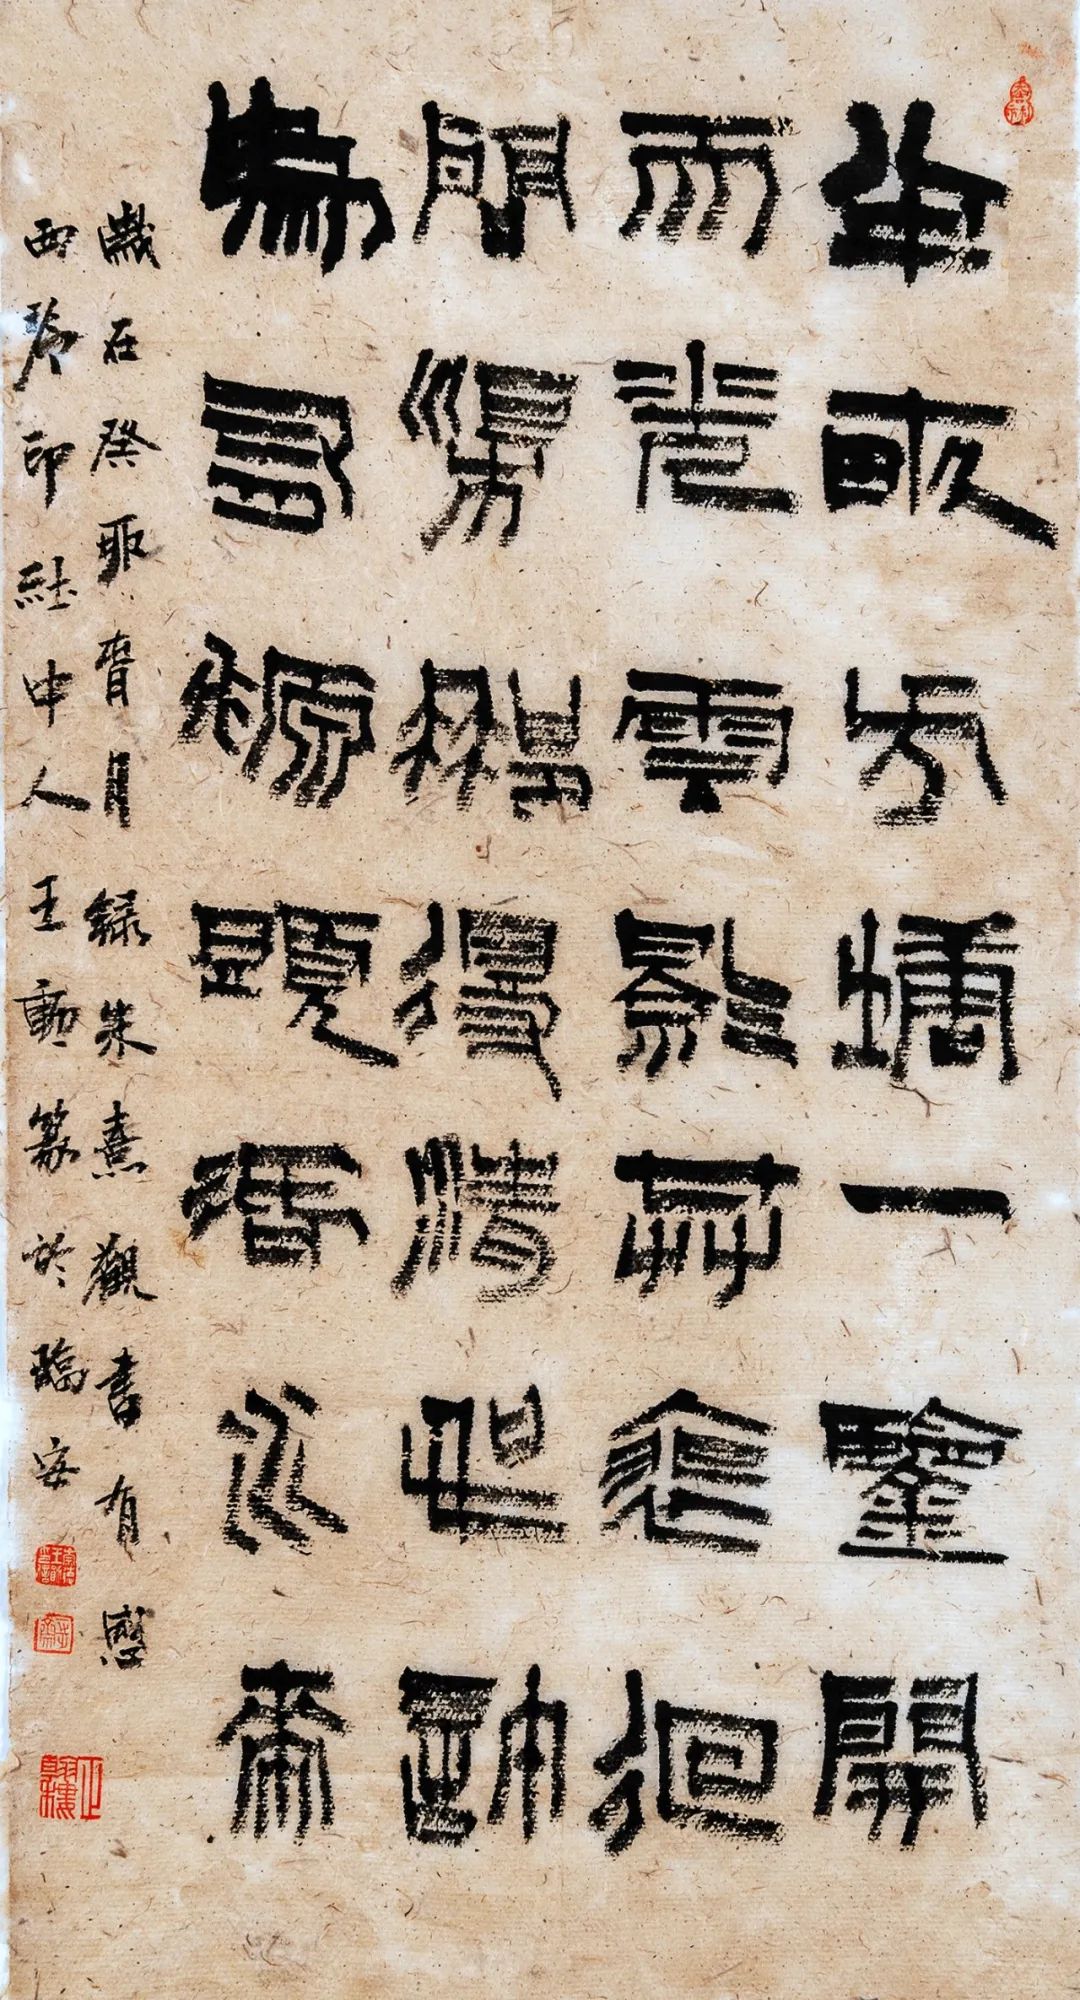 半畝方塘一鑒開
天光雲影共裴徊
問渠那得清如許
為有源頭活水來
歲在癸卯春月錄朱熹觀書有感
西泠印社中人王勳篆於臨安